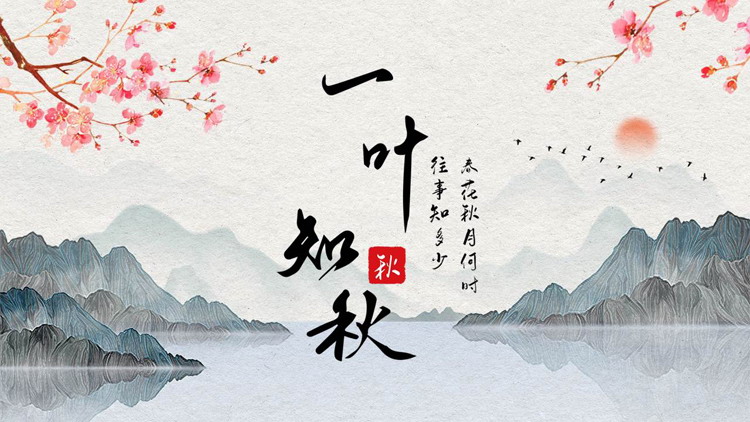 一叶知秋
秋
春花秋月何时
往事知多少